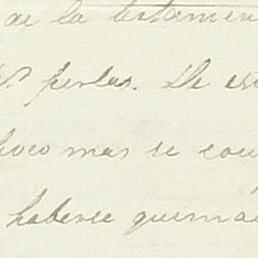 de la testamen
perlas. De es
poco mas se cou
haberse quema